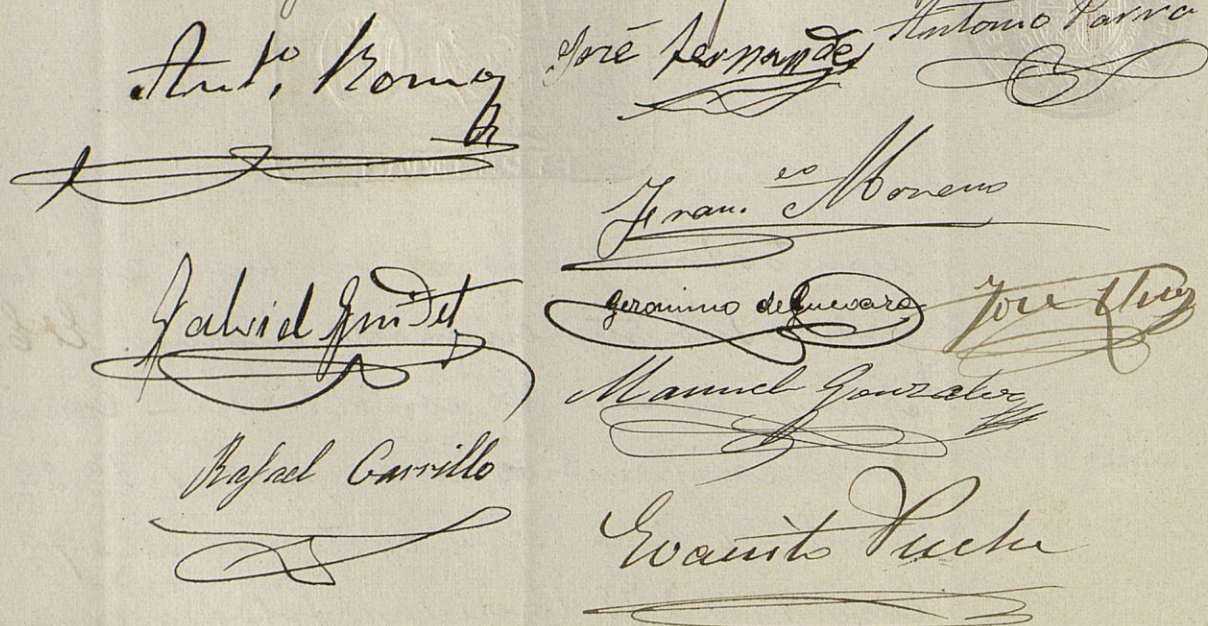 Antº. Roma
José Fernandez
Antonio Parra
Fran.co Moreno
Gabriel
Geronimo de Guevara
José
Manuel Gonzalez
Rafael Carrillo
Evaristo Puche